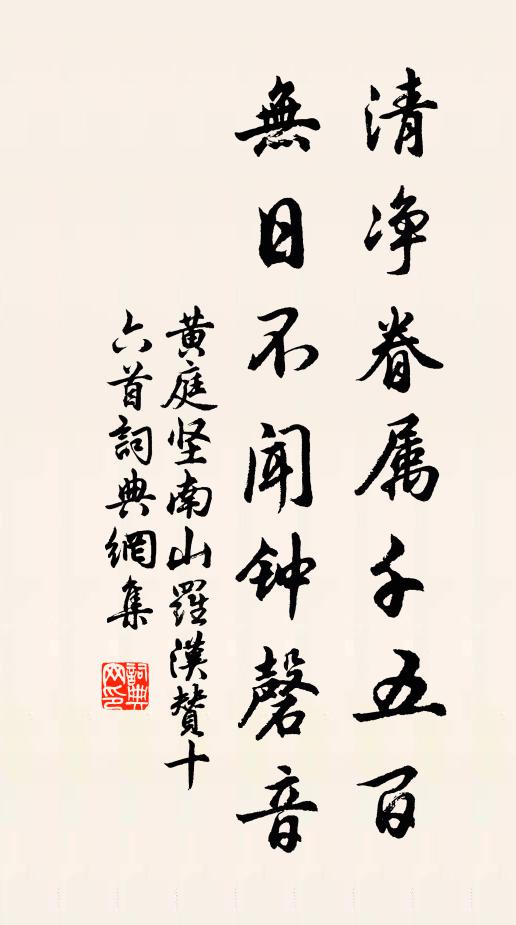 清净眷属千五百
無日不闻钟磬音
黄庭坚南山羅漢賛十
六首詞典網集
詞典网印